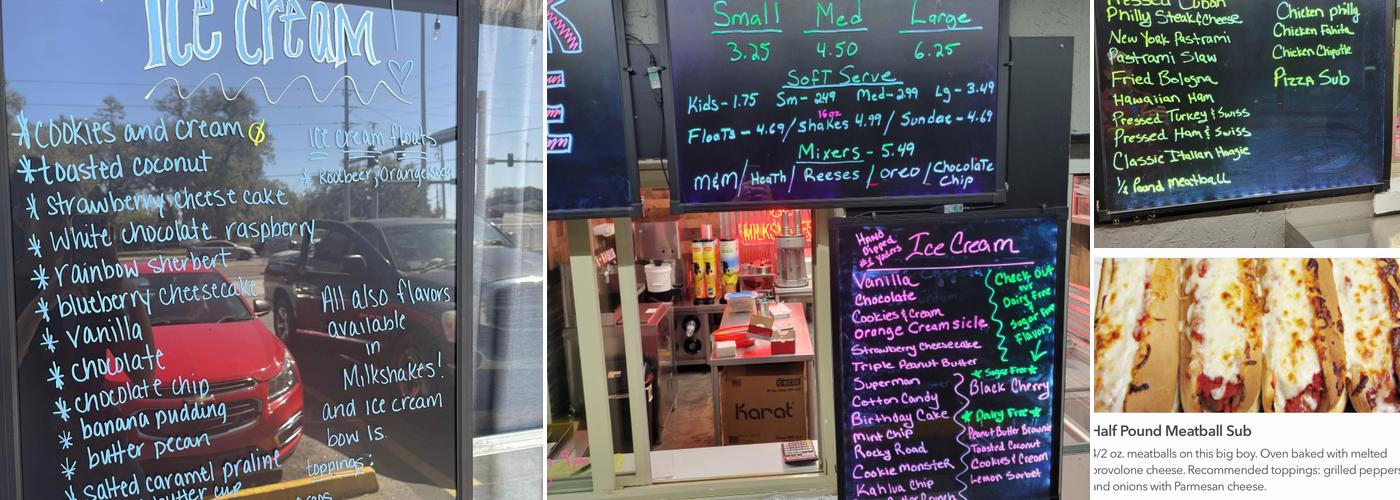 Ice cream!
* cookies and cream
* toasted coconut
* strawberry cheese cake
* White chocolate raspberry
* rainbow sherbert
* blueberry cheesecake
* Vanilla
* chocolate
* chocolate chip
* banana pudding
* butter pecan
* salted caramel praline
butter cup
Ice cream floats
* Rootbeer, Orange soda
All also flavors
available
in
Milkshakes!
and ice cream
bowls.
toppings:
Small Med Large
3.25 4.50 6.25
Soft Serve
Kids-1.75 Sm-2.49 Med-2.99 Lg-3.49
16oz
Floats-4.69/Shakes 4.99/Sundae-4.69
Mixers-5.49
M&M/Heath/Reeses/Oreo/Chocolate
Chip
MILKS
Karat
Hand
Dipped
Ice Cream
Vanilla
Chocolate
Cookies & Cream
Orange Creamsicle
Strawberry Cheesecake
Triple Peanut Butter
Superman
Cotton Candy
Birthday Cake
Mint Chip
Rocky Road
Cookie monster
Kahlua Chip
Check Out
our
Dairy Free
&
Sugar Free
Flavors
* Sugar Free *
Black Cherry
* Dairy Free *
Peanut Butter Brownie
Toasted Coconut
Cookies & Cream
Lemon Sorbet
Pressed Cuban
Philly Steak & Cheese
New York Pastrami
Pastrami Slaw
Fried Bologna
Hawaiian Ham
Pressed Turkey & Swiss
Pressed Ham & Swiss
Classic Italian Hoagie
1/2 Pound meatball
Chicken philly
Chicken Fahita
Chicken Chipotle
Pizza Sub
Half Pound Meatball Sub
4/2 oz. meatballs on this big boy. Oven baked with melted
provolone cheese. Recommended toppings: grilled peppers
and onions with Parmesan cheese.